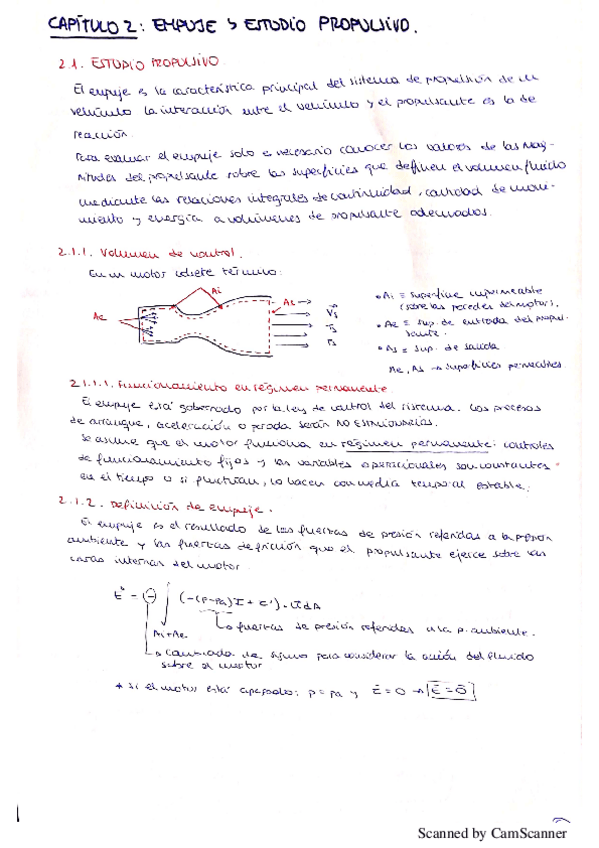 CAPÍTULO 2: EMPUJE Y ESTUDIO PROPULSIVO.
2.1. ESTUDIO PROPULSIVO
El empuje es la característica principal del sistema de propulsión de un
vehículo la interacción entre el vehículo y el propulsante es la de
reacción.
Para evaluar el empuje solo es necesario conocer los valores de las mag-
nitudes del propulsante sobre las superficies que definen el volumen fluido
mediante las relaciones integrales de continuidad, cantidad de movi-
miento y energía a volúmenes de propulsante adecuados.
2.1.1. Volumen de control.
En un motor cohete térmico:
Ai
Ae
As
• Ai ≡ superficie impermeable
(sobre las paredes del motor).
• Ae ≡ sup. de entrada del propul-
sante.
• As ≡ sup. de salida
Ae, As → superficies permeables
2.1.1.1. Funcionamiento en régimen permanente
El empuje está gobernado por la ley de control del sistema. Los procesos
de arranque, aceleración o parada serán NO ESTACIONARIOS.
Se asume que el motor funciona en régimen permanente: controles
de funcionamiento fijos y las variables operacionales son constantes
en el tiempo o si fluctúan, lo hacen con media temporal estable.
2.1.2. Definición de empuje.
El empuje es el resultado de las fuerzas de presión referidas a la presión
ambiente y las fuerzas de fricción que el propulsante ejerce sobre las
caras internas del motor
(-(p-pa)
Ai+Ae
fuerzas de presión referidas a la p. ambiente.
cambiado de signo para considerar la acción del fluido
sobre el motor
* si el motor está apagado: p=pa y
Scanned by CamScanner